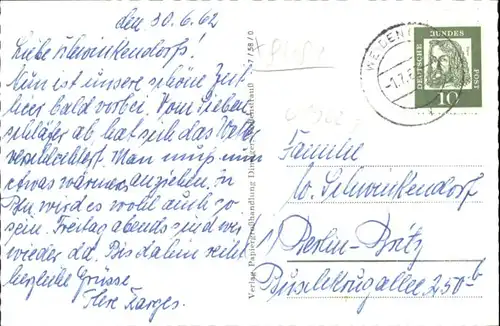 den 30.6.62
Liebe Schwinkendorfs!
Nun ist unsere schöne Zeit
hier bald vorbei. Vom Sieben-
schläfer ab, hat sich das Wetter
verschlechtert. Man muß nun
etwas wärmer anziehen, in
Bln. wird es wohl auch so
sein. Freitag abends sind wir
wieder da. Bis dahin seid
herzliche Grüsse
Ihre Farges.
Verlag Papiergroßhandlung
WEIDEN
-1.7.6
DEUTSCHE BUNDES POST
10
Familie
W. Schwinkendorf
1 Berlin-Britz
Buschkrugallee 250 b